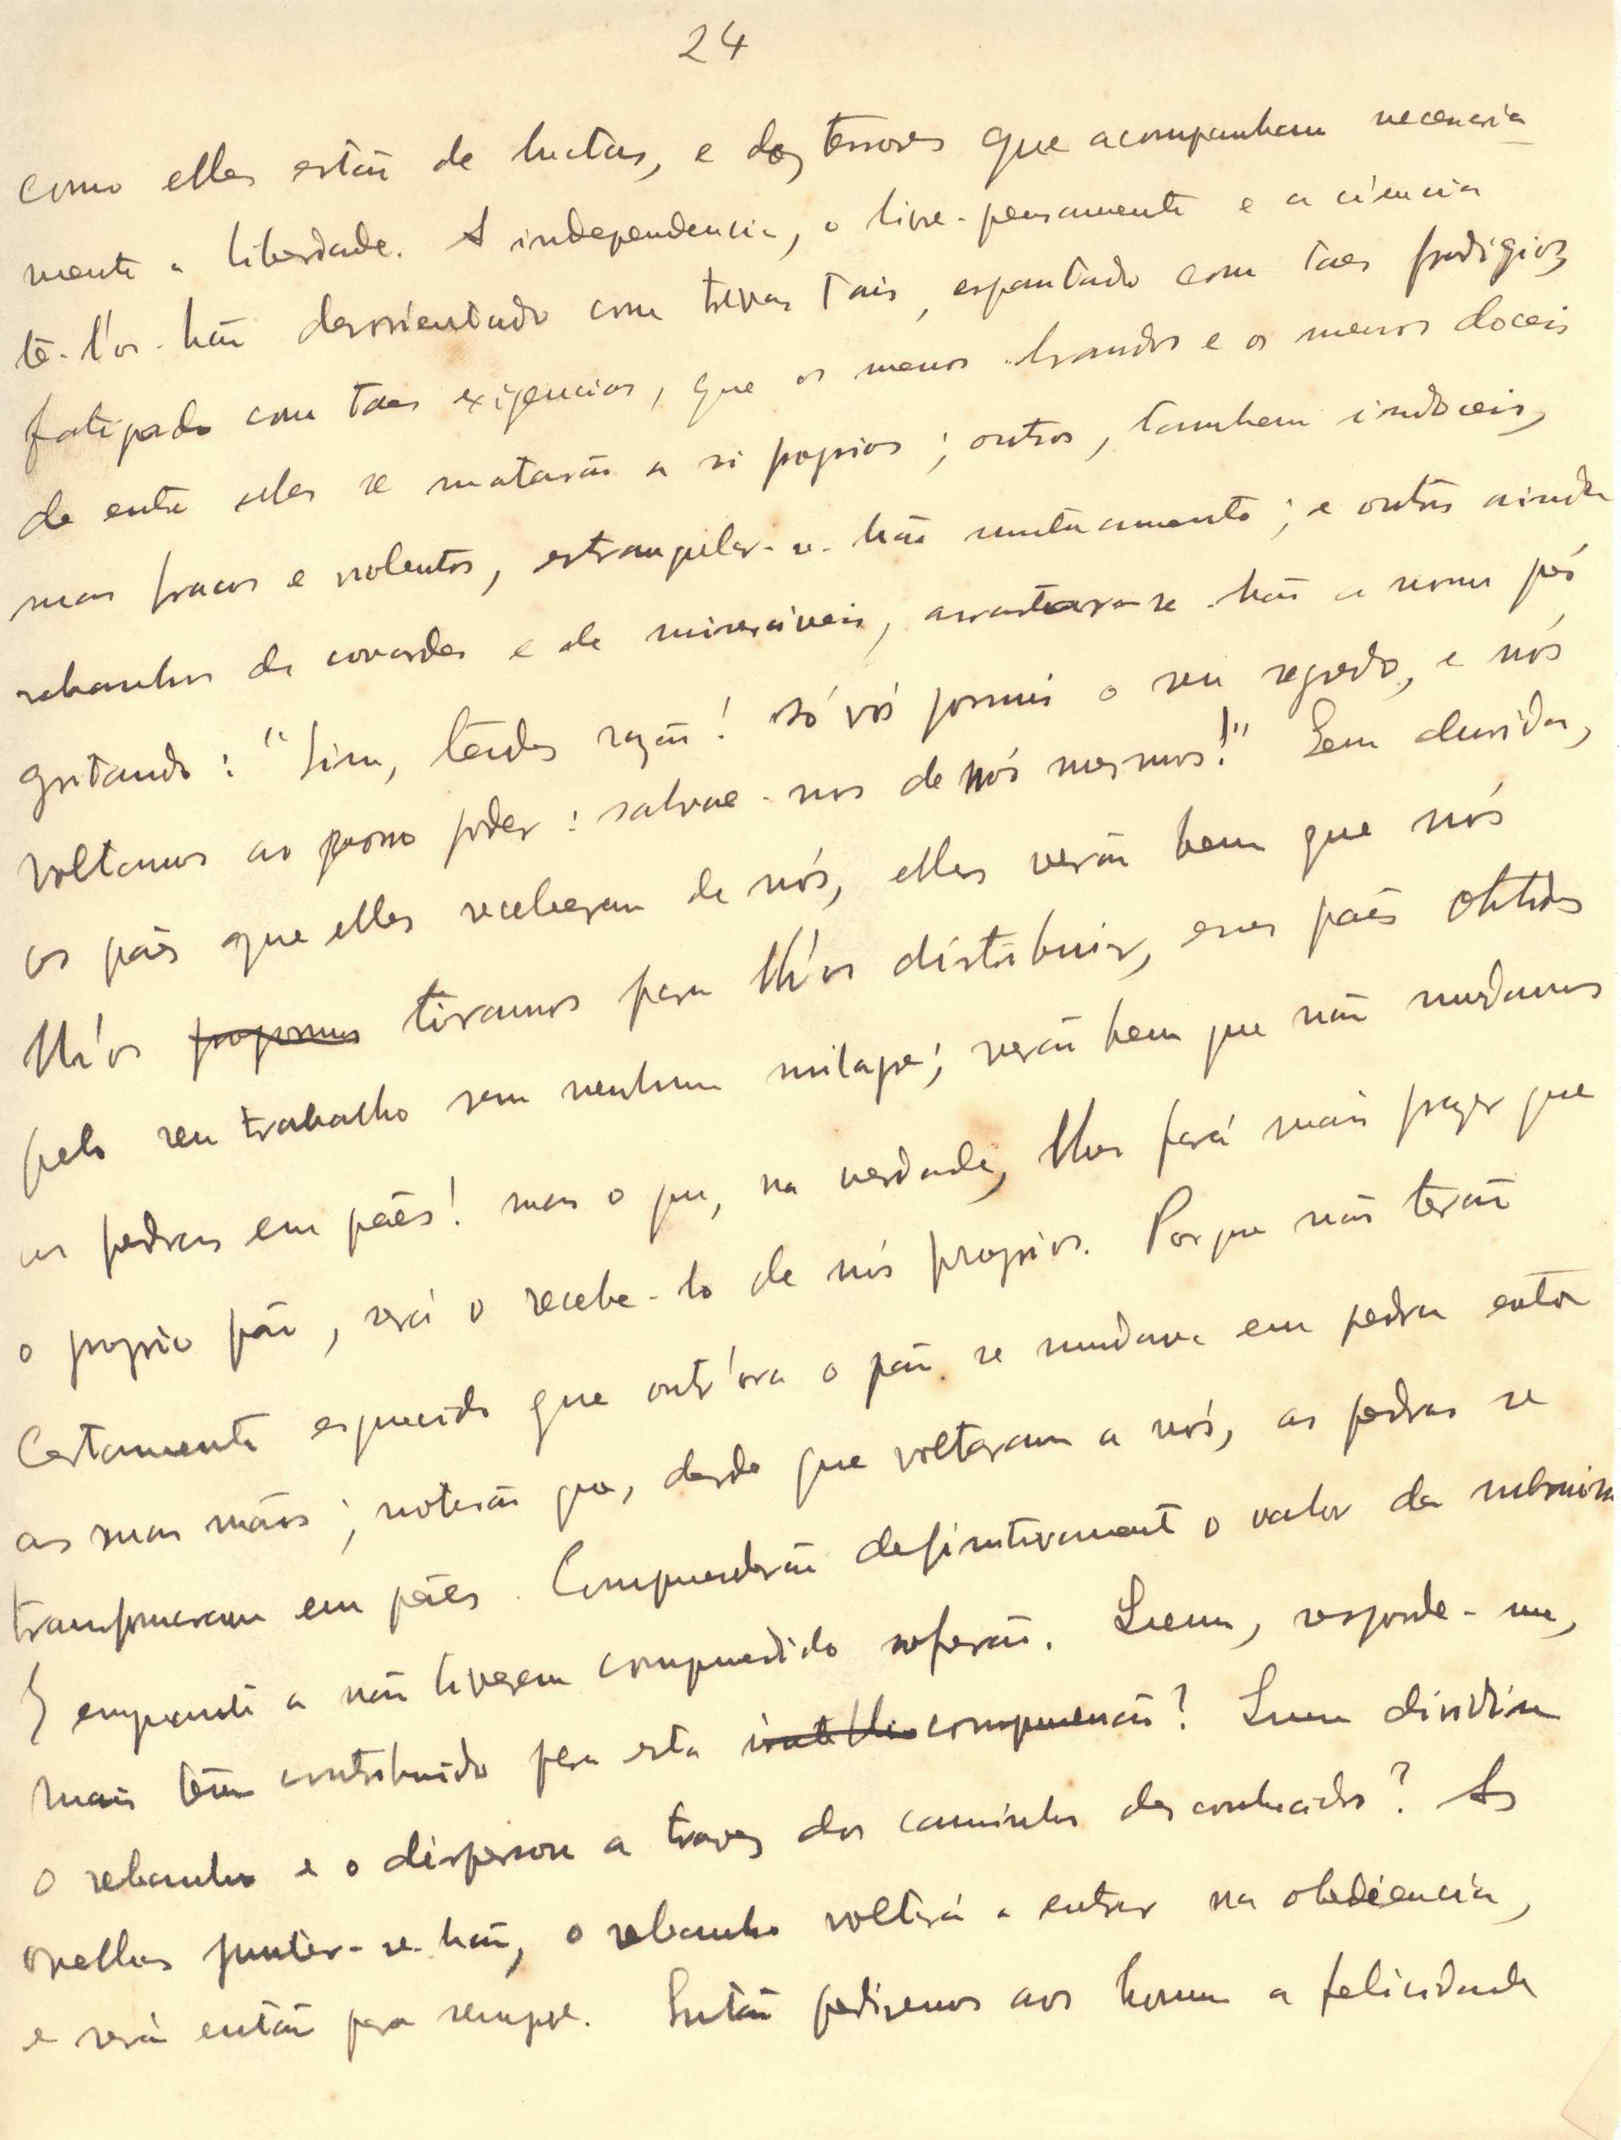 24
como elles estão de luctas, e dos terrores que acompanham necessaria-
mente a liberdade. A independencia, o livre-pensamento e a ciência
tê-l'os-hão desorientado com trevas tais, espantado com taes prodigios,
fatigado com taes exigencias, que os menos brandos e os menos doceis
de entre elles se matarão a si proprios; outros, tambem indoceis,
mas fracos e violentos, estrangular-se-hão mutuamente; e outros ainda
rebanhos de covardes e de miseráveis, arrastar-se-hão a nossos pés
gritando: "Sim, tendes razão! Só vós possuis o seu segredo, e nós
voltamos ao vosso poder: salvae-nos de nós mesmos!" Sem duvida,
os pães que elles receberem de nós, elles verão bem que nós
lh'os propomos tiramos para lh'os distribuir, esses pães obtidos
pelo seu trabalho sem nenhum milagre; verão bem que não mudamos
as pedras em pães! mas o que, na verdade, lhes fará mais prazer que
o proprio pão, será o recebe-lo de nós proprios. Porque não terão
Certamente esquecido que outr'ora o pão se mudava em pedra entre
as suas mãos; notarão que, desde que voltaram a nós, as pedras se
transformaram em pães. Compreenderão definitivamente o valor da submissão
E emquanto a não tiverem compreendido sofrerão. Quem, responde-me,
mais tem contribuido para esta compreensão? Quem dividiu
o rebanho e o dispersou a travez dos caminhos desconhecidos? As
ovelhas juntar-se-hão, o rebanho voltará a entrar na obediencia,
e será então para sempre. Então pediremos aos homens a felicidade